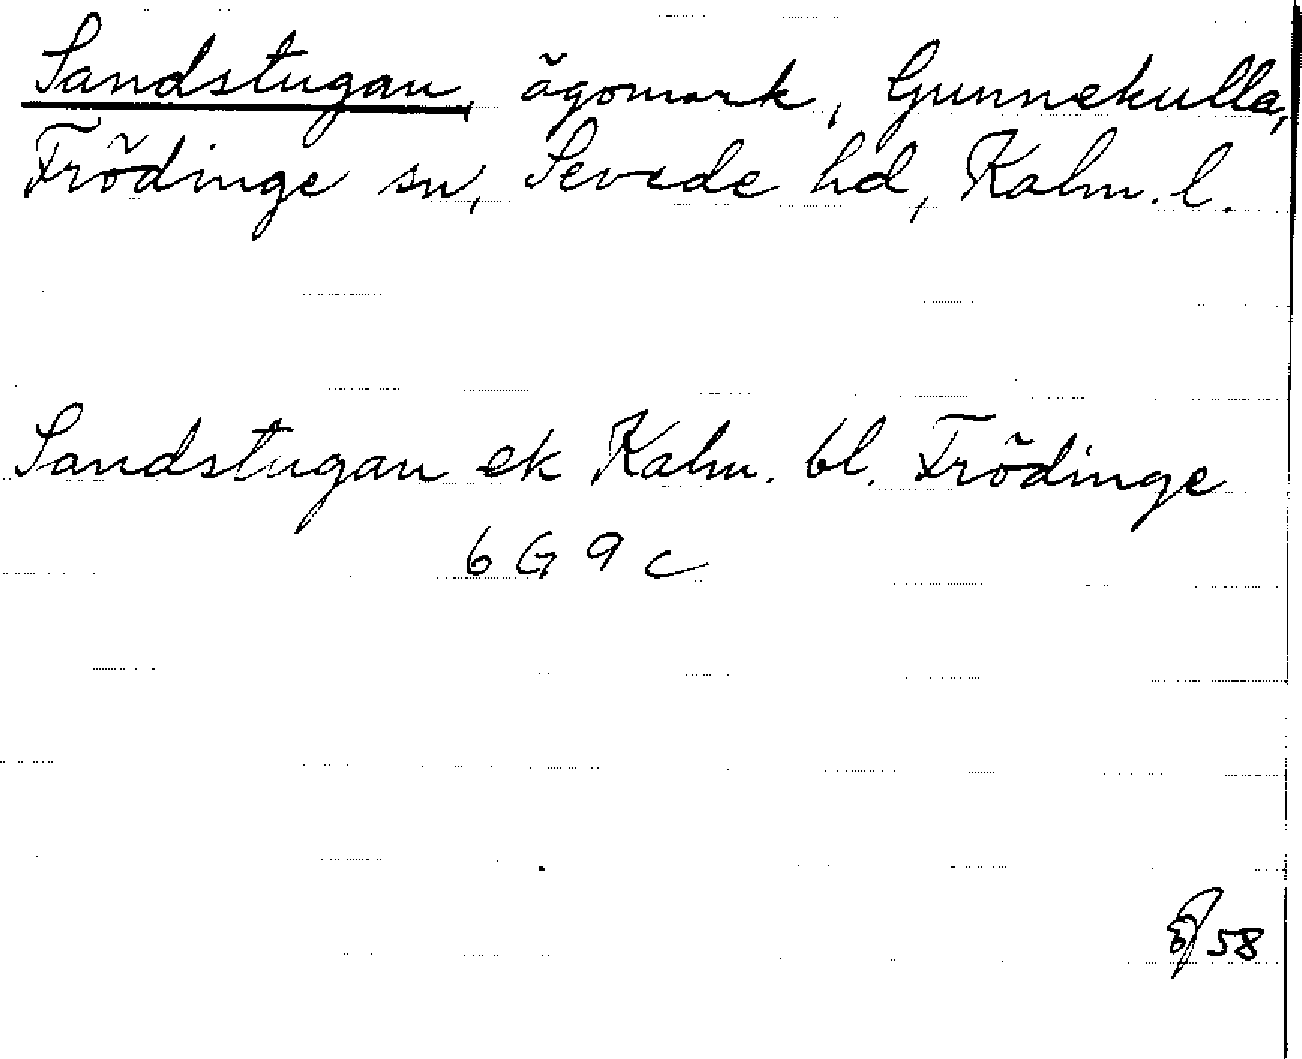 Sandstugan, ägomark, Gunnekulla,
Frödinge sn, Sevede hd, Kalm. l.
Sandstugan ek Kalm. bl. Frödinge
6 G 9 c
58